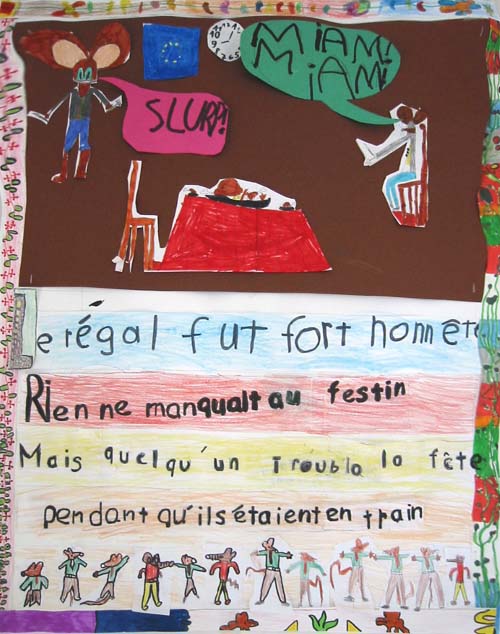 MIAM!
MIAM!
SLURP!
Le régal fut fort honnête
Rien ne manquait au festin
Mais quelqu'un Troubla la fête
pendant qu'ils étaient en train